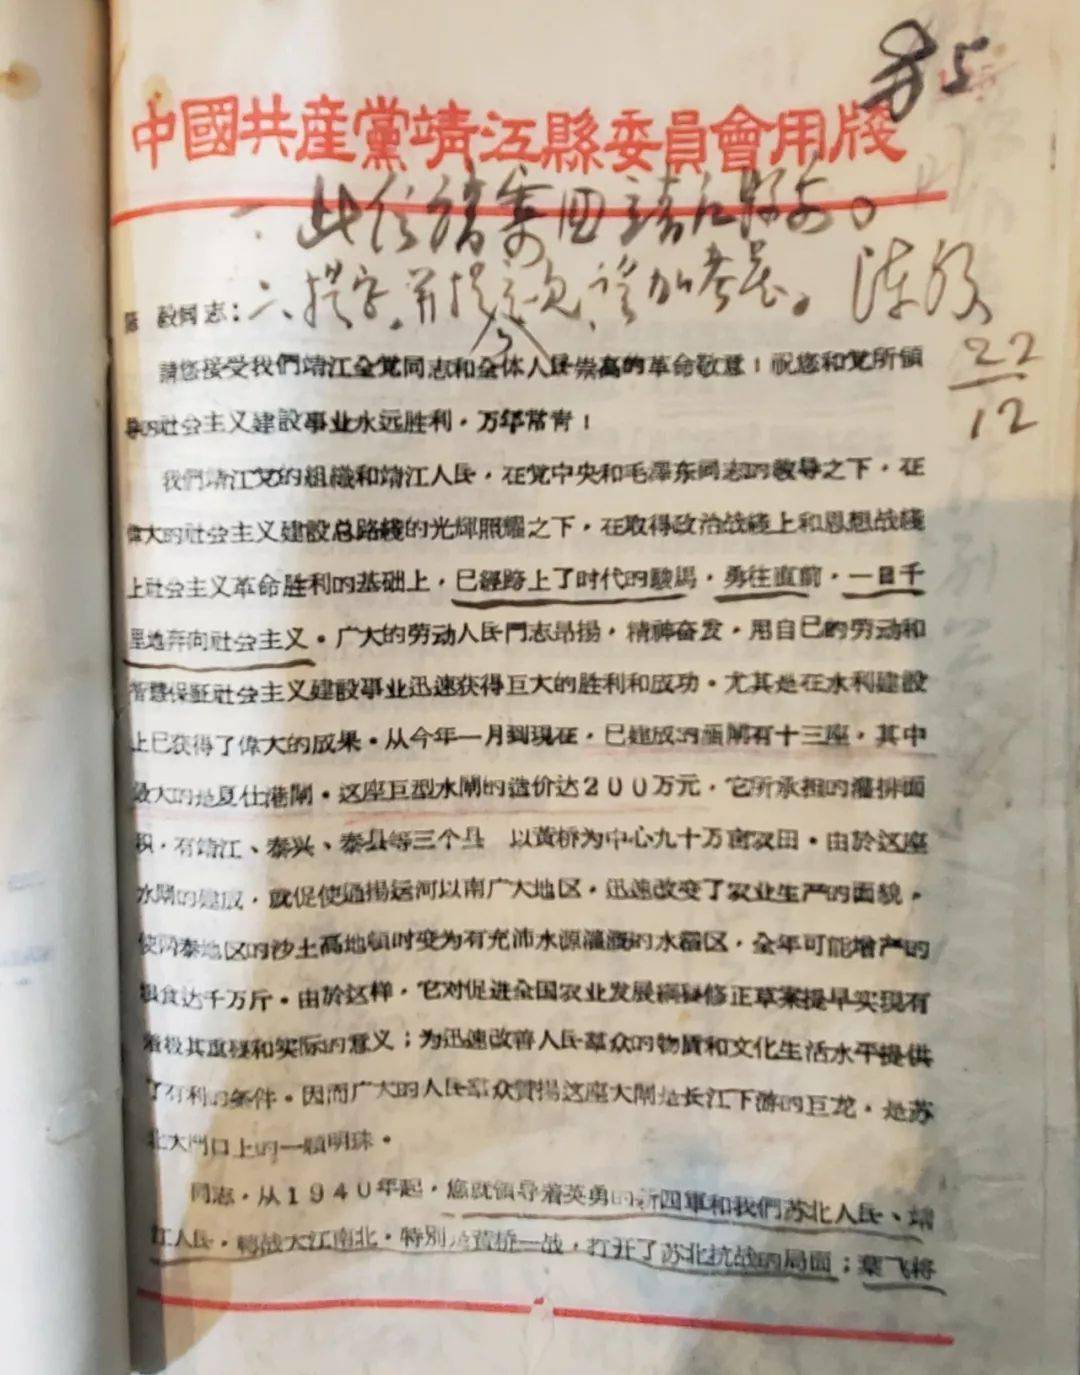 5
中國共産黨靖江縣委員會用牋
一、此信請寄回靖江縣委。
二、提字、并提意见、请加考虑。 陈毅
22/12
陈 毅同志：
請您接受我們靖江全党同志和全体人民崇高的革命敬意！祝您和党所領
导的社会主义建設事业永远胜利，万年常青！
我們靖江党的組織和靖江人民，在党中央和毛澤东同志的教导之下，在
偉大的社会主义建設总路綫的光輝照耀之下，在取得政治战綫上和思想战綫
上社会主义革命胜利的基础上，已經跨上了时代的駿馬，勇往直前，一日千
里地奔向社会主义。广大的劳动人民鬥志昂揚，精神奋发，用自己的劳动和
智慧保証社会主义建設事业迅速获得巨大的胜利和成功。尤其是在水利建設
上已获得了偉大的成果。从今年一月到現在，已建成的涵閘有十三座，其中
最大的是夏仕港閘。这座巨型水閘的造价达200万元，它所承担的灌排面
积，有靖江、泰兴、泰县等三个县 以黄桥为中心九十万亩农田。由於这座
水閘的建成，就促使通揚运河以南广大地区，迅速改变了农业生产的面貌，
使两泰地区的沙土高地頓时变为有充沛水源灌溉的水稻区，全年可能增产的
粮食达千万斤。由於这样，它对促进全国农业发展綱要修正草案提早实現有
着极其重要和实际的意义；为迅速改善人民羣众的物質和文化生活水平提供
了有利的条件。因而广大的人民羣众贊揚这座大閘是长江下游的巨龙，是苏
北大門口上的一顆明珠。
同志，从1940年起，您就領导着英勇的新四軍和我們苏北人民、靖
江人民，轉战大江南北，特別是黄桥一战，打开了苏北抗战的局面；葉飞将